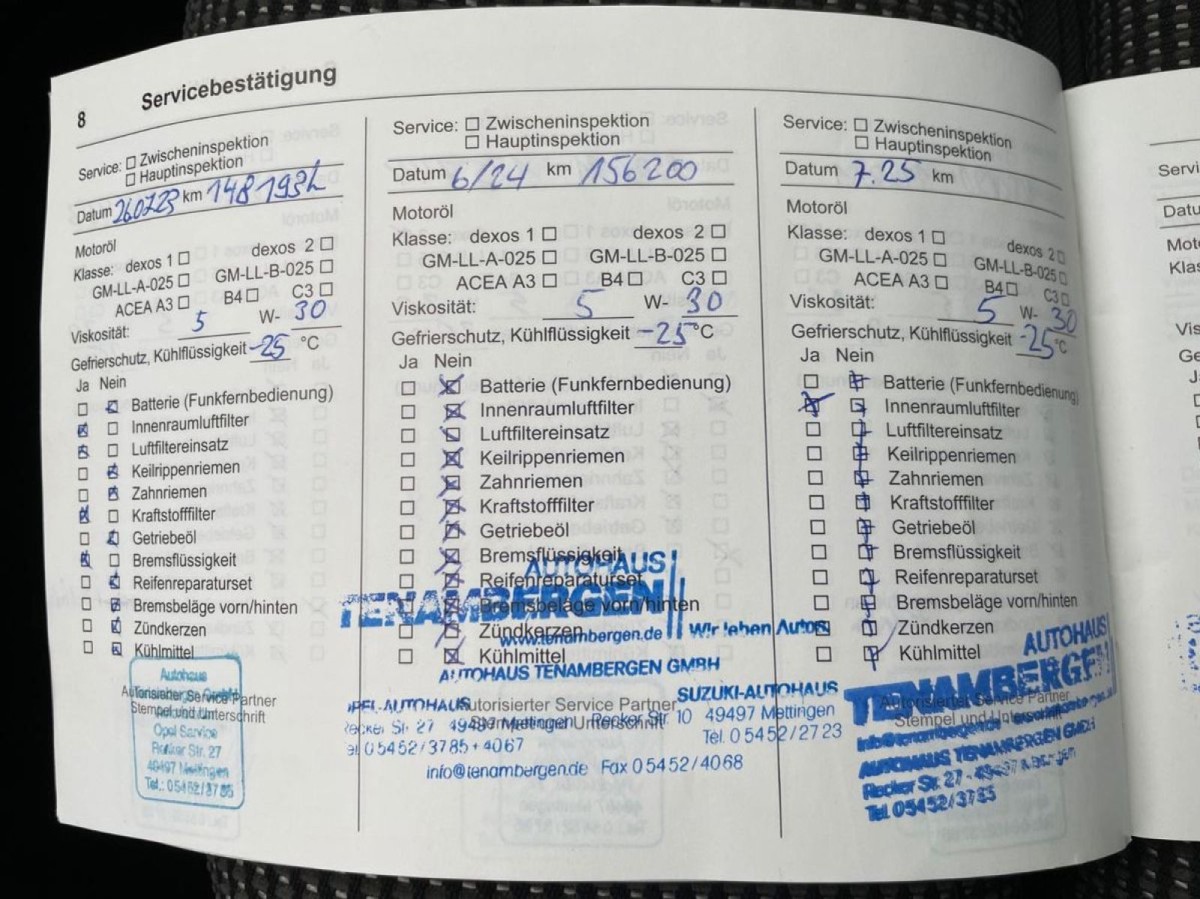 8 Servicebestätigung
Service: Zwischeninspektion
Hauptinspektion
Datum 260723 km 148193
Motoröl
Klasse: dexos 1 dexos 2
GM-LL-A-025 GM-LL-B-025
ACEA A3 B4 C3
Viskosität: 5 W- 30
Gefrierschutz, Kühlflüssigkeit -25 °C
Ja Nein
Batterie (Funkfernbedienung)
Innenraumluftfilter
Luftfiltereinsatz
Keilrippenriemen
Zahnriemen
Kraftstofffilter
Getriebeöl
Bremsflüssigkeit
Reifenreparaturset
Bremsbeläge vorn/hinten
Zündkerzen
Kühlmittel
Autorisierter Service Partner
Stempel und Unterschrift
Autohaus
Opel Service
Recker Str. 27
49497 Mettingen
Tel.: 05452/3785
Service: Zwischeninspektion
Hauptinspektion
Datum 6/24 km 156200
Motoröl
Klasse: dexos 1 dexos 2
GM-LL-A-025 GM-LL-B-025
ACEA A3 B4 C3
Viskosität: 5 W- 30
Gefrierschutz, Kühlflüssigkeit -25 °C
Ja Nein
Batterie (Funkfernbedienung)
Innenraumluftfilter
Luftfiltereinsatz
Keilrippenriemen
Zahnriemen
Kraftstofffilter
Getriebeöl
Bremsflüssigkeit
Reifenreparaturset
Bremsbeläge vorn/hinten
Zündkerzen
Kühlmittel
Autorisierter Service Partner
Stempel und Unterschrift
AUTOHAUS
TENAMBERGEN
www.tenambergen.de Wir leben Autos
AUTOHAUS TENAMBERGEN GMBH
OPEL-AUTOHAUS SUZUKI-AUTOHAUS
Recker Str. 27 49497 Mettingen Recker Str. 10 49497 Mettingen
Tel. 05452/3785+4067 Tel. 05452/2723
info@tenambergen.de Fax 05452/4068
Service: Zwischeninspektion
Hauptinspektion
Datum 7.25 km
Motoröl
Klasse: dexos 1 dexos 2
GM-LL-A-025 GM-LL-B-025
ACEA A3 B4 C3
Viskosität: 5 W- 30
Gefrierschutz, Kühlflüssigkeit -25 °C
Ja Nein
Batterie (Funkfernbedienung)
Innenraumluftfilter
Luftfiltereinsatz
Keilrippenriemen
Zahnriemen
Kraftstofffilter
Getriebeöl
Bremsflüssigkeit
Reifenreparaturset
Bremsbeläge vorn/hinten
Zündkerzen
Kühlmittel
Autorisierter Service Partner
Stempel und Unterschrift
AUTOHAUS
TENAMBERGEN
AUTOHAUS TENAMBERGEN GMBH
Recker Str. 27
Tel. 05452/3785
Servi
Datu
Moto
Klas
Vis
Ge
J